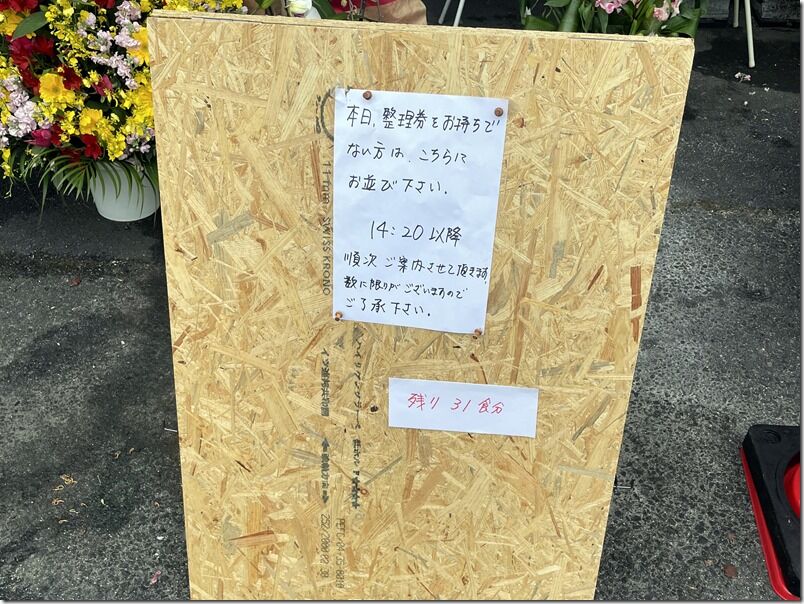 本日、整理券をお持ちで
ない方は、こちらに
お並び下さい。
14:20以降
順次ご案内させて頂きます。
数に限りがございますので
ご了承下さい。
残り 31 食分
11mm SWISS KRONO